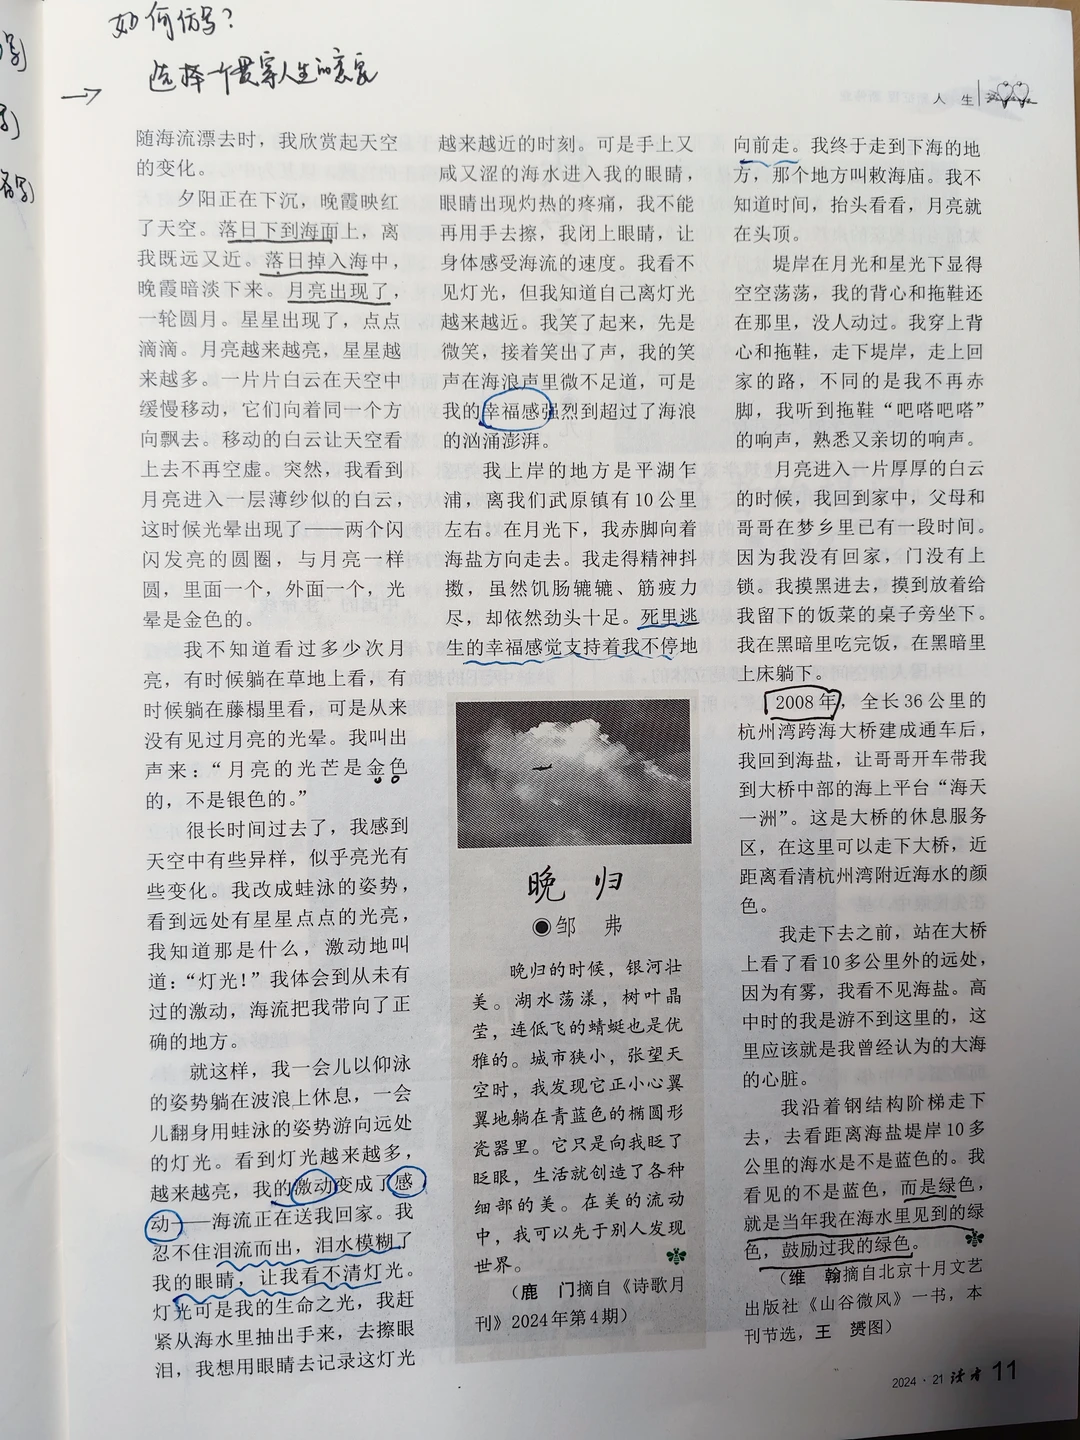 如何仿写?
选择一个贯穿人生的意象
人 生
随海流漂去时，我欣赏起天空
的变化。
夕阳正在下沉，晚霞映红
了天空。落日下到海面上，离
我既远又近。落日掉入海中，
晚霞暗淡下来。月亮出现了，
一轮圆月。星星出现了，点点
滴滴。月亮越来越亮，星星越
来越多。一片片白云在天空中
缓慢移动，它们向着同一个方
向飘去。移动的白云让天空看
上去不再空虚。突然，我看到
月亮进入一层薄纱似的白云，
这时候光晕出现了——两个闪
闪发亮的圆圈，与月亮一样
圆，里面一个，外面一个，光
晕是金色的。
我不知道看过多少次月
亮，有时候躺在草地上看，有
时候躺在藤榻里看，可是从来
没有见过月亮的光晕。我叫出
声来：“月亮的光芒是金色
的，不是银色的。”
很长时间过去了，我感到
天空中有些异样，似乎亮光有
些变化。我改成蛙泳的姿势，
看到远处有星星点点的光亮，
我知道那是什么，激动地叫
道：“灯光！”我体会到从未有
过的激动，海流把我带向了正
确的地方。
就这样，我一会儿以仰泳
的姿势躺在波浪上休息，一会
儿翻身用蛙泳的姿势游向远处
的灯光。看到灯光越来越多，
越来越亮，我的激动变成了感
动——海流正在送我回家。我
忍不住泪流而出，泪水模糊了
我的眼睛，让我看不清灯光。
灯光可是我的生命之光，我赶
紧从海水里抽出手来，去擦眼
泪，我想用眼睛去记录这灯光
越来越近的时刻。可是手上又
咸又涩的海水进入我的眼睛，
眼睛出现灼热的疼痛，我不能
再用手去擦，我闭上眼睛，让
身体感受海流的速度。我看不
见灯光，但我知道自己离灯光
越来越近。我笑了起来，先是
微笑，接着笑出了声，我的笑
声在海浪声里微不足道，可是
我的幸福感强烈到超过了海浪
的汹涌澎湃。
我上岸的地方是平湖乍
浦，离我们武原镇有10公里
左右。在月光下，我赤脚向着
海盐方向走去。我走得精神抖
擞，虽然饥肠辘辘、筋疲力
尽，却依然劲头十足。死里逃
生的幸福感觉支持着我不停地
向前走。我终于走到下海的地
方，那个地方叫敕海庙。我不
知道时间，抬头看看，月亮就
在头顶。
堤岸在月光和星光下显得
空空荡荡，我的背心和拖鞋还
在那里，没人动过。我穿上背
心和拖鞋，走下堤岸，走上回
家的路，不同的是我不再赤
脚，我听到拖鞋“吧嗒吧嗒”
的响声，熟悉又亲切的响声。
月亮进入一片厚厚的白云
的时候，我回到家中，父母和
哥哥在梦乡里已有一段时间。
因为我没有回家，门没有上
锁。我摸黑进去，摸到放着给
我留下的饭菜的桌子旁坐下。
我在黑暗里吃完饭，在黑暗里
上床躺下。
2008年，全长36公里的
杭州湾跨海大桥建成通车后，
我回到海盐，让哥哥开车带我
到大桥中部的海上平台“海天
一洲”。这是大桥的休息服务
区，在这里可以走下大桥，近
距离看清杭州湾附近海水的颜
色。
我走下去之前，站在大桥
上看了看10多公里外的远处，
因为有雾，我看不见海盐。高
中时的我是游不到这里的，这
里应该就是我曾经认为的大海
的心脏。
我沿着钢结构阶梯走下
去，去看距离海盐堤岸10多
公里的海水是不是蓝色的。我
看见的不是蓝色，而是绿色，
就是当年我在海水里见到的绿
色，鼓励过我的绿色。
（维 翰摘自北京十月文艺
出版社《山谷微风》一书，本
刊节选，王 赟图）
晚 归
◉邹 弗
晚归的时候，银河壮
美。湖水荡漾，树叶晶
莹，连低飞的蜻蜓也是优
雅的。城市狭小，张望天
空时，我发现它正小心翼
翼地躺在青蓝色的椭圆形
瓷器里。它只是向我眨了
眨眼，生活就创造了各种
细部的美。在美的流动
中，我可以先于别人发现
世界。
（鹿 门摘自《诗歌月
刊》2024年第4期）
2024·21 读者 11